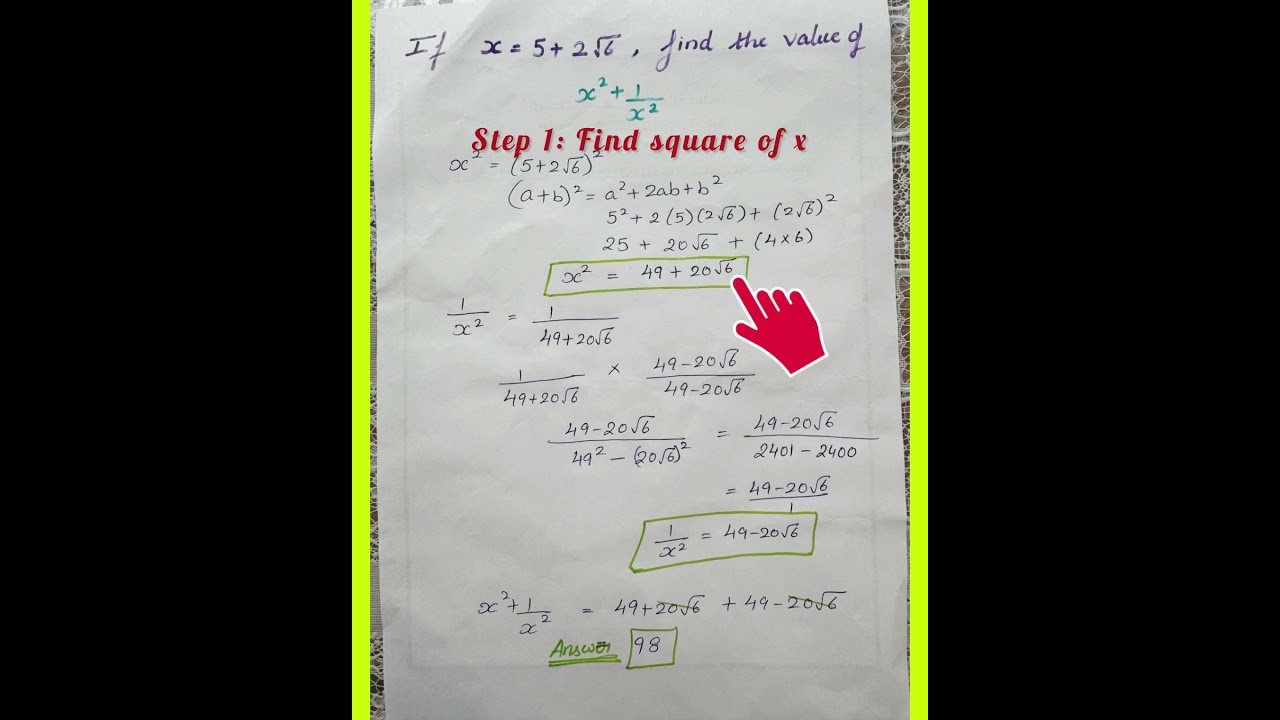 If x = 5 + 2√6 , find the value of
x² + 1/x²
Step 1: Find square of x
x² = (5+2√6)²
(a+b)² = a²+2ab+b²
5² + 2(5)(2√6) + (2√6)²
25 + 20√6 + (4×6)
x² = 49 + 20√6
1/x² = 1/(49+20√6)
1/(49+20√6) × (49-20√6)/(49-20√6)
(49-20√6)/(49² - (20√6)²) = (49-20√6)/(2401-2400)
= (49-20√6)/1
1/x² = 49-20√6
x² + 1/x² = 49+20√6 + 49-20√6
Answer 98